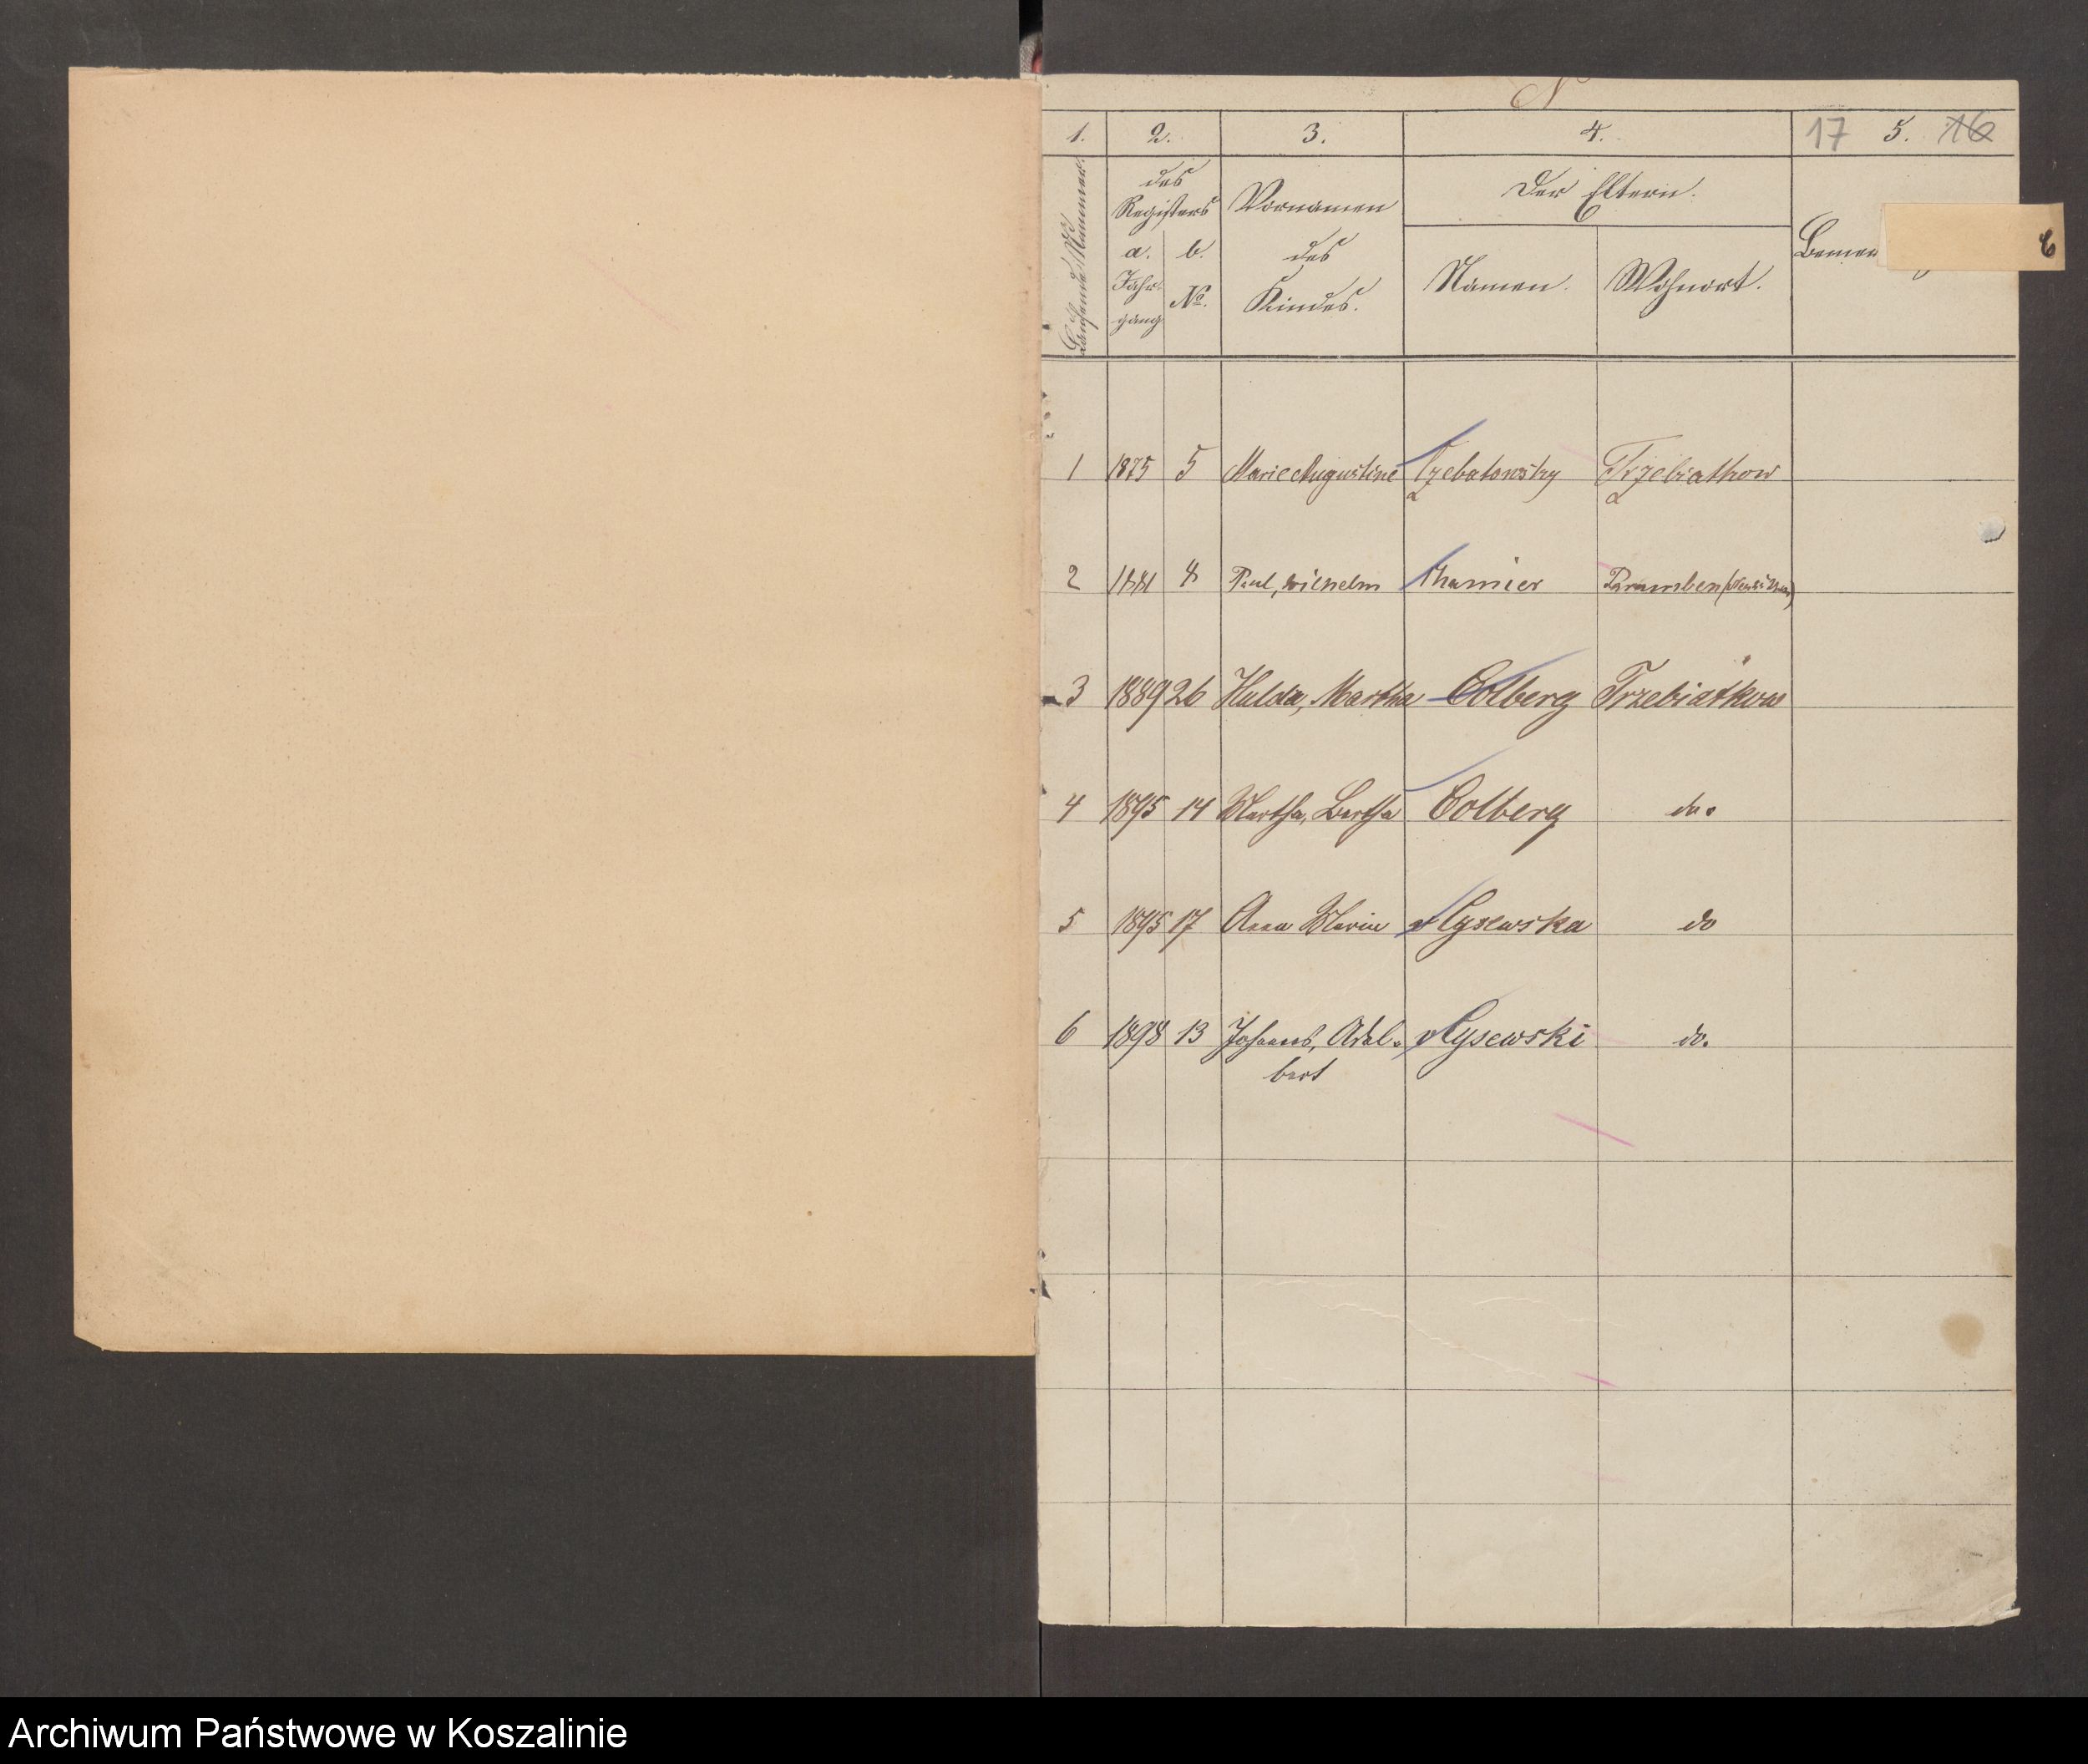 1. 2. 3. 4. 17 5. 16
Laufende Nummer.
des Registers
Vornamen des Kindes.
Der Eltern.
a. Jahrgang
b. No.
Namen.
Wohnort.
Bemer
C
1 1875 5 Marie Augustine Czebatowsky Trzebiatkow
2 1881 8 Paul, Wilhelm Chamier
3 1889 26 Hulda, Martha Colberg Trzebiatkow
4 1895 14 Martha, Bertha Colberg do.
5 1895 17 Anna Marie Cysewska do
6 1898 13 Johannes, Adal-
bert Cysewski do.
Archiwum Państwowe w Koszalinie